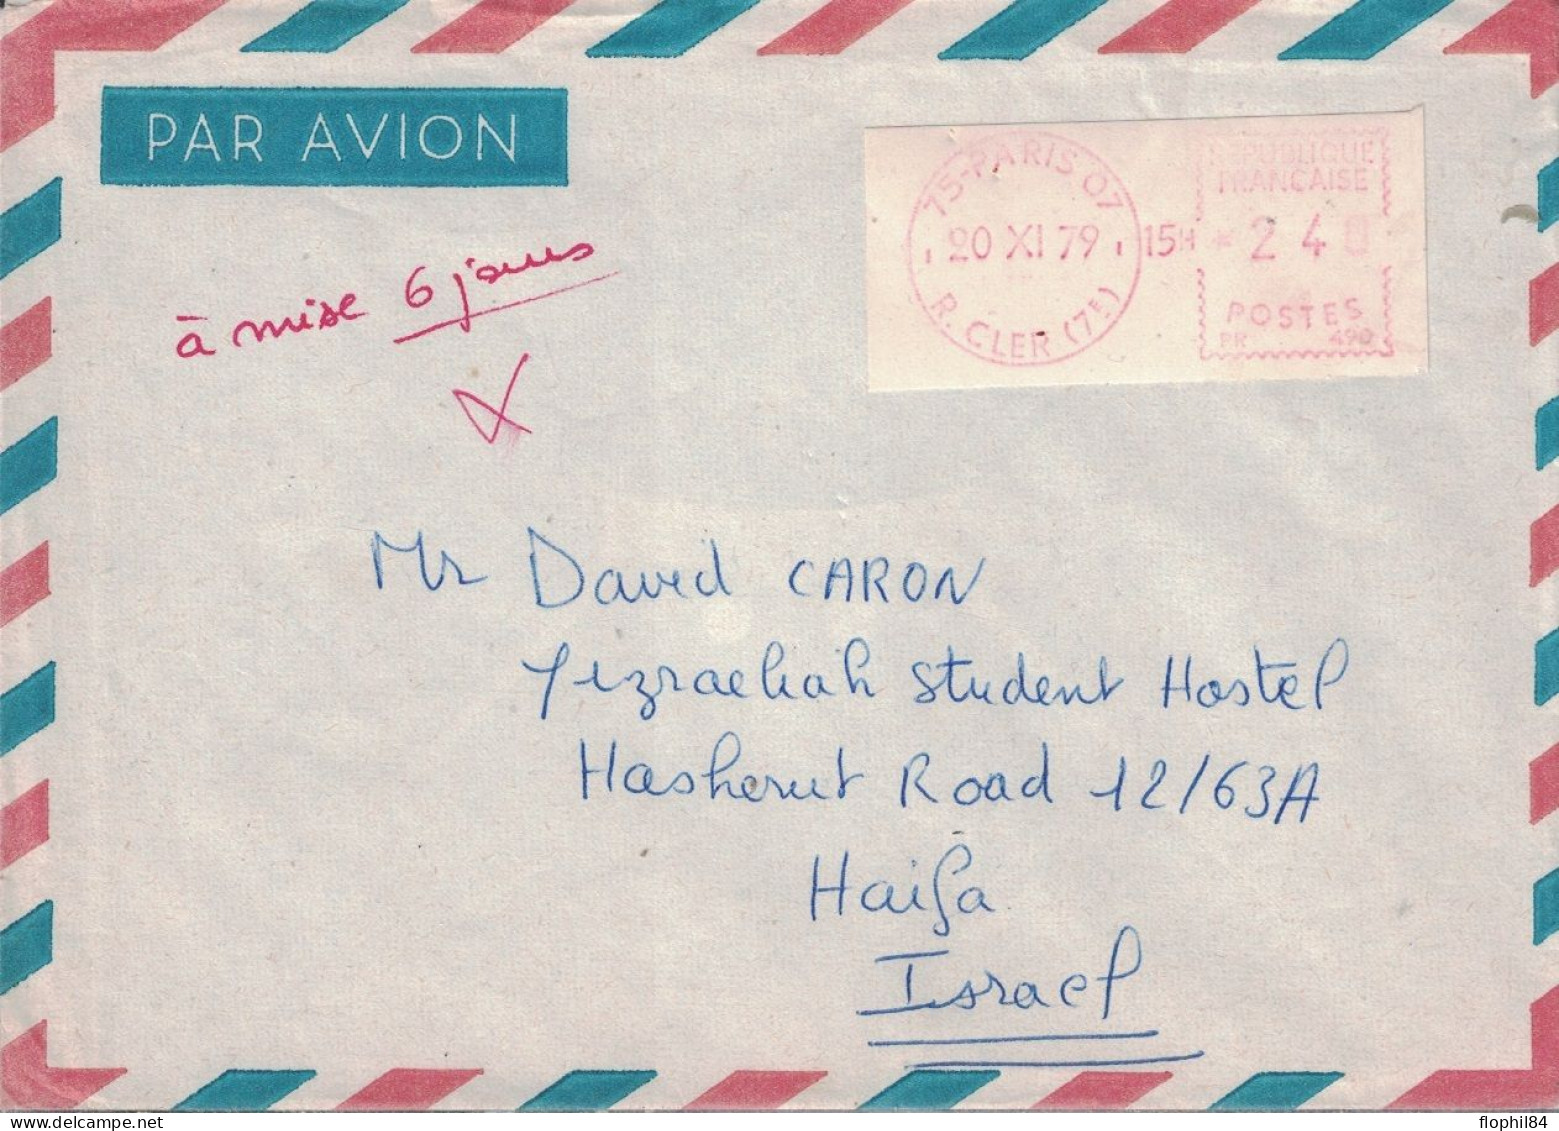 PAR AVION
75-PARIS 07
20 XI 79
R. CLER (7E)
15H
RÉPUBLIQUE
FRANCAISE
* 2 4 0
POSTES
PR 490
à mise 6 jours
Mr David CARON
Yizraeliah Student Hostel
Hasherut Road 12/63A
Haifa
Israel
flophil84